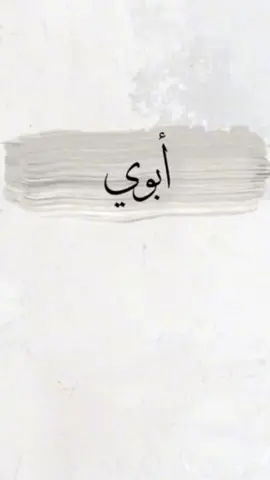 أبوي